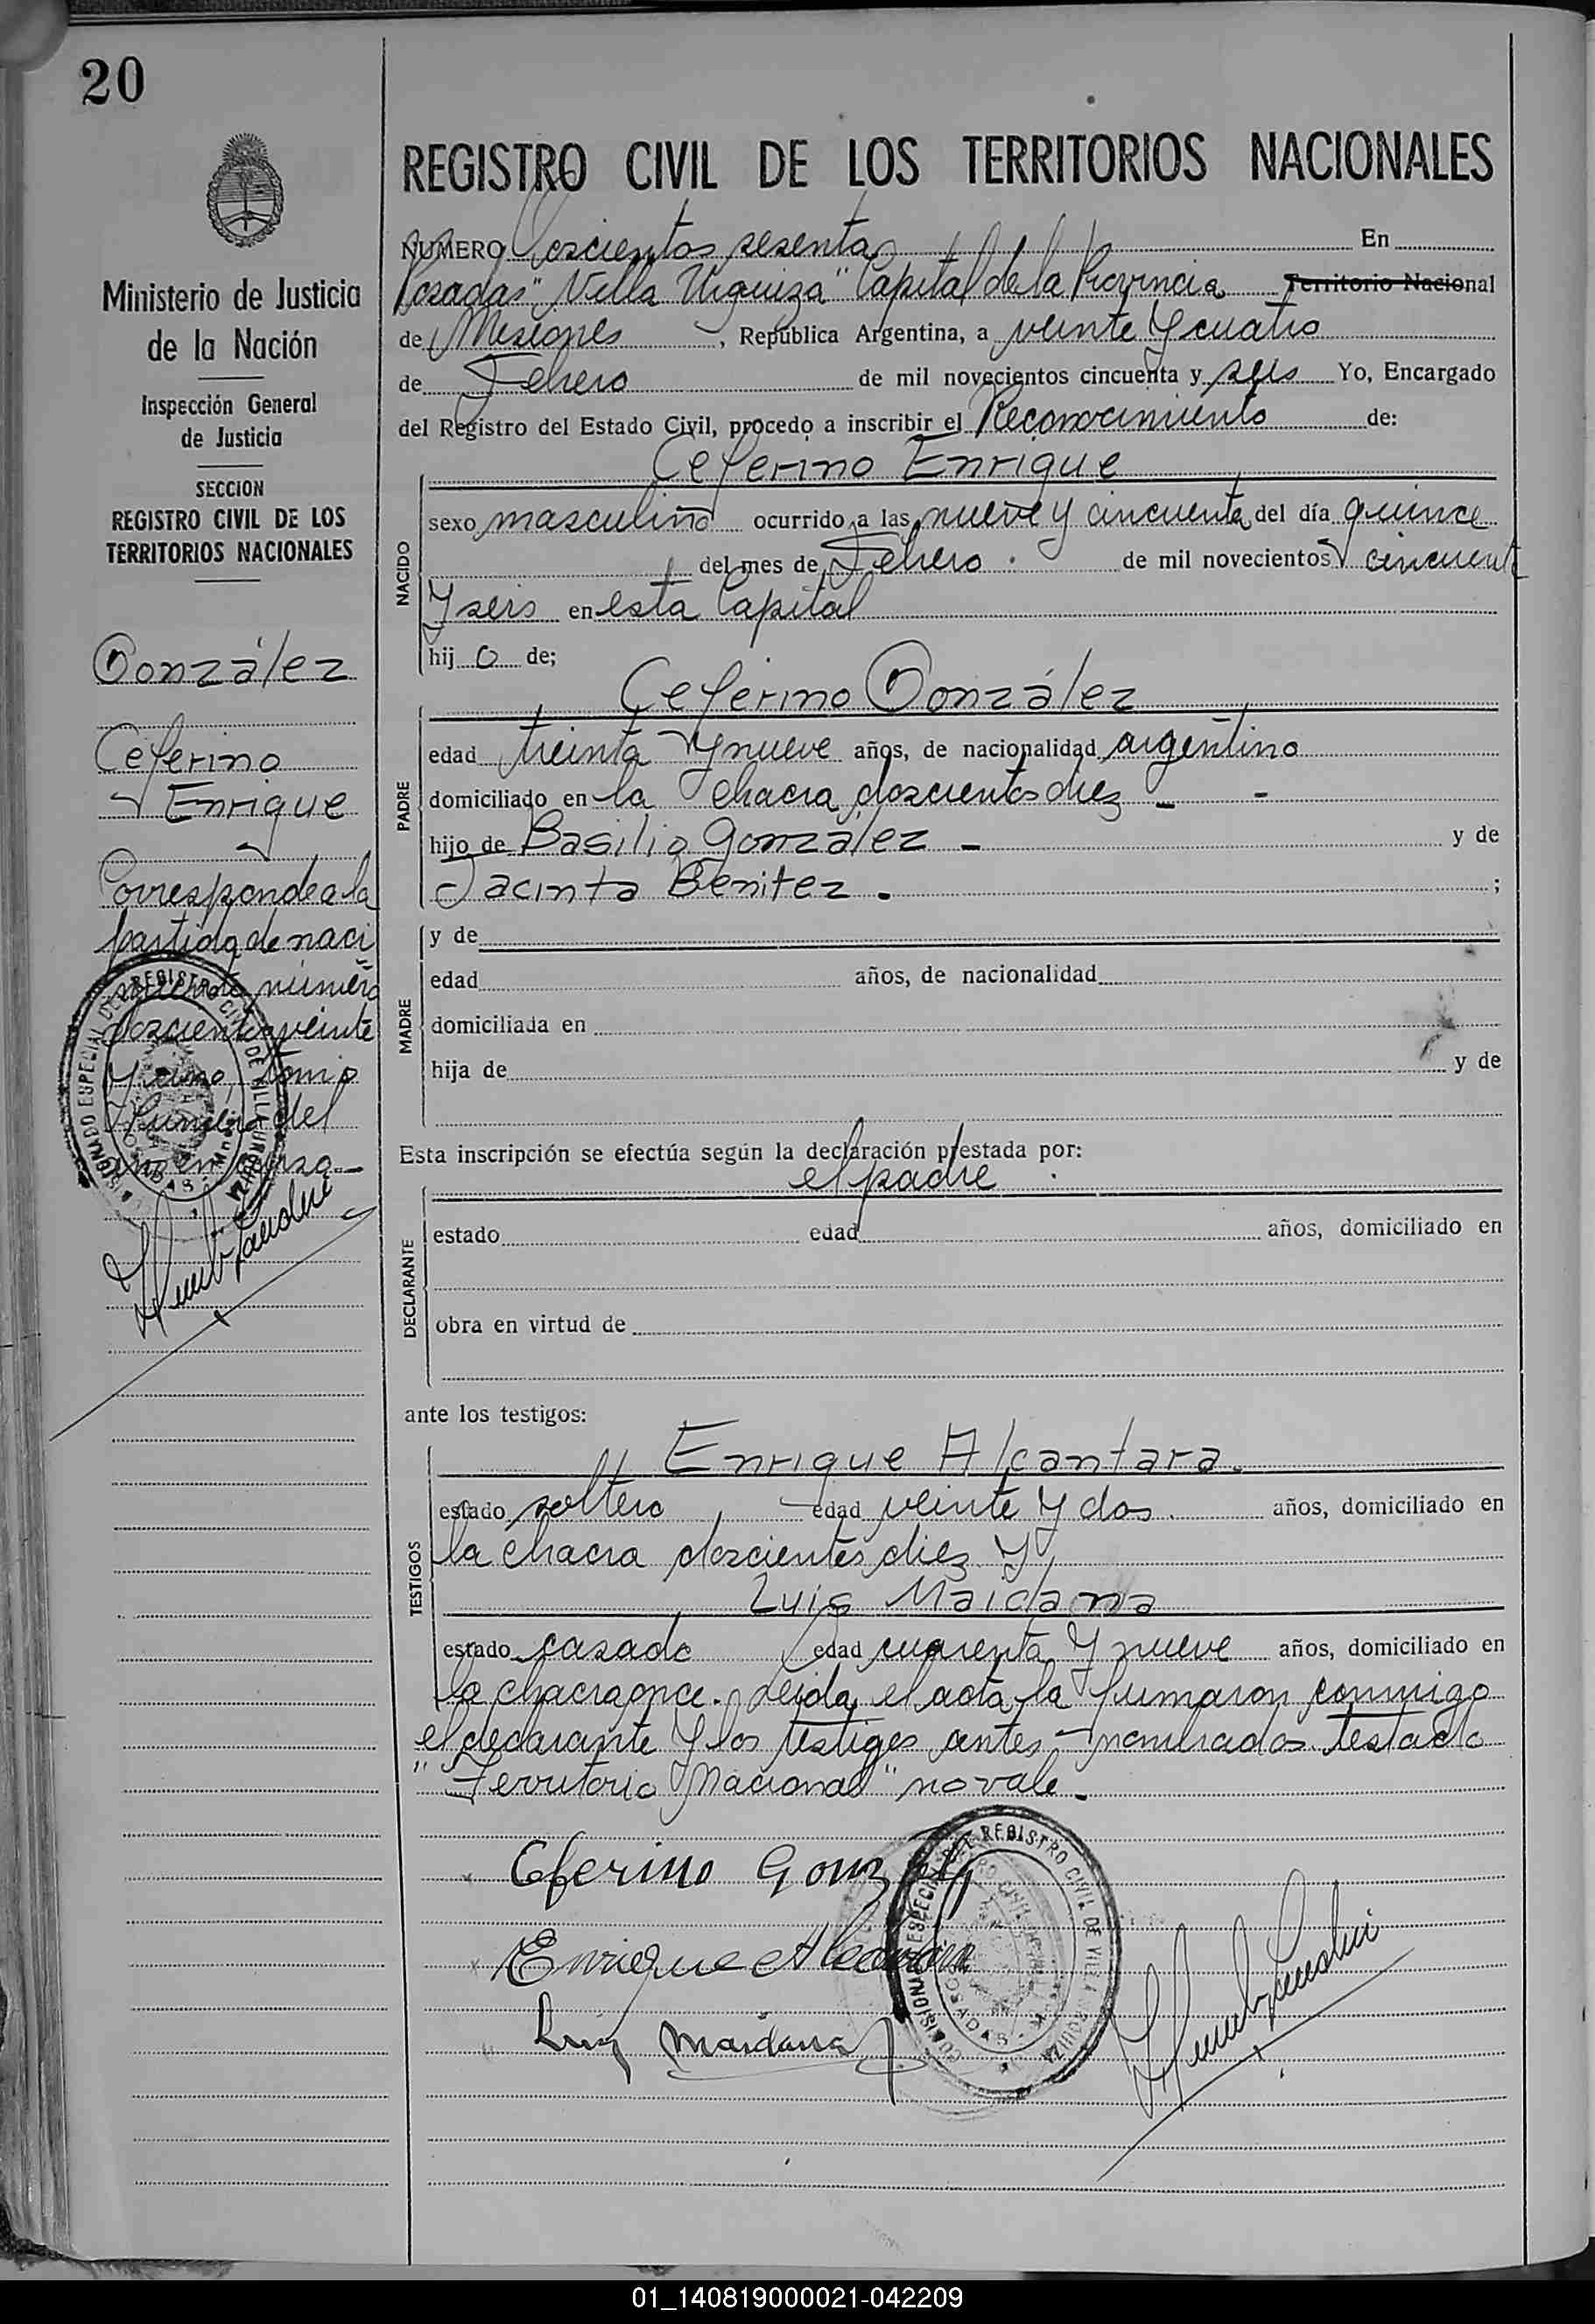 20
Ministerio de Justicia
de la Nación
Inspección General
de Justicia
SECCION
REGISTRO CIVIL DE LOS
TERRITORIOS NACIONALES
González
Ceferino
Enrique
Corresponde a la
partida de naci
miento número
doscientos veinte
y uno, tomo
primero del
año en curso.-
REGISTRO CIVIL DE LOS TERRITORIOS NACIONALES
NUMERO Doscientos sesenta En
Posadas "Villa Urquiza" Capital de la Provincia Territorio Nacional
de Misiones, República Argentina, a veinte y cuatro
de Febrero de mil novecientos cincuenta y seis Yo, Encargado
del Registro del Estado Civil, procedo a inscribir el Reconocimiento de:
Ceferino Enrique
NACIDO
sexo masculino ocurrido a las nueve y cincuenta del día quince
del mes de Febrero. de mil novecientos cincuenta
y seis en esta Capital
hij o de;
Ceferino González
PADRE
edad treinta y nueve años, de nacionalidad argentino
domiciliado en la chacra doscientos diez - -
hijo de Basilio González - y de
Jacinta Benitez. ;
MADRE
y de
edad años, de nacionalidad
domiciliada en
hija de y de
Esta inscripción se efectúa según la declaración prestada por:
el padre
DECLARANTE
estado edad años, domiciliado en
obra en virtud de
ante los testigos:
TESTIGOS
Enrique Alcantara.
estado soltero edad veinte y dos. años, domiciliado en
la chacra doscientos diez y
Luis Maidana
estado casado edad cuarenta y nueve años, domiciliado en
la chacra once. Leida el acta la firmaron conmigo
el declarante y los testigos antes nombrados. testado
"Territorio Nacional" no vale.
Ceferino Gonzalez
Enrique Alcantara
Luis Maidana
REGISTRO CIVIL DE VILLA URQUIZA
POSADAS
01_140819000021-042209